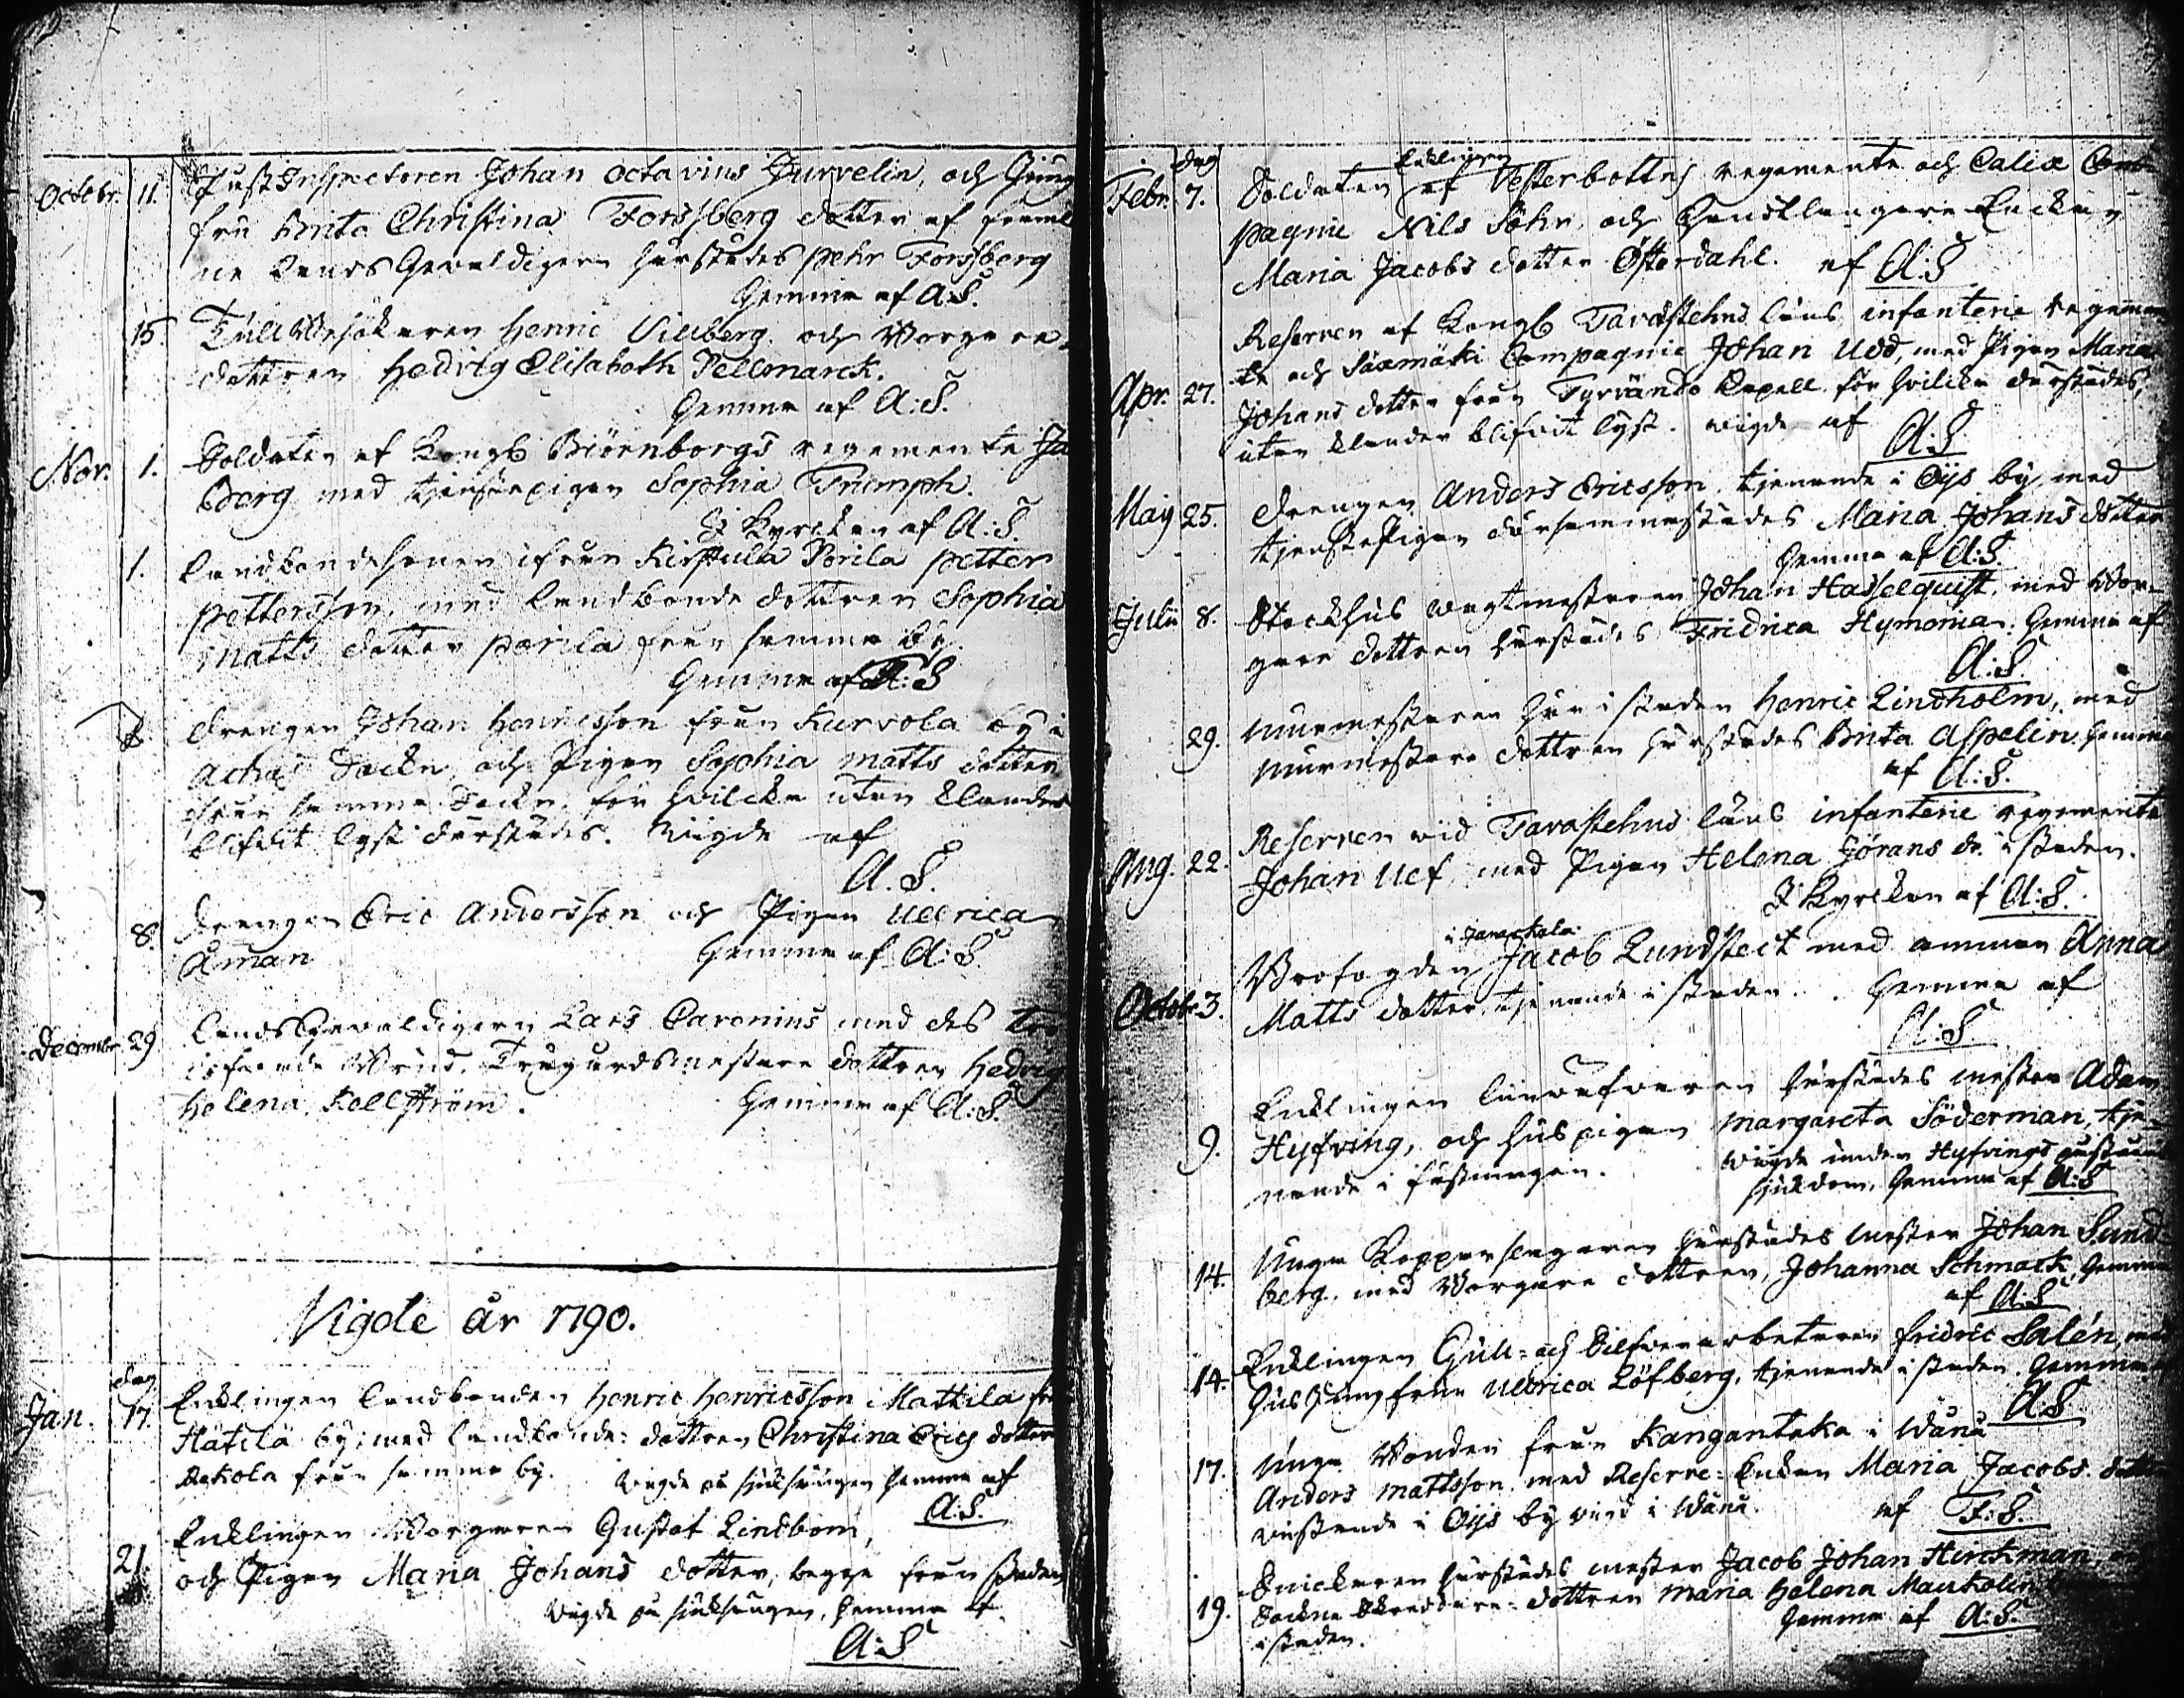 Octobr. 11. Post Inspectoren Johan Octavius Gurvelin, och Jung
fru Brita Christina Forssberg dotter af framl
ne Lands Gevaldigern härstädes Pehr Forssberg
Hemma af A:S.
15. Tull Besökaren Henric Villberg och Borgare
dottren Hedvig Elisabeth Pellmarck.
Hemma af A:S.
Nov. 1. Soldaten af Kongl Biörnborgs regemente Ja
Berg med tjenstepigan Sophia Triumph.
I Kyrckan af A:S.
1. Landbondesonen ifrån Kirstula Parila Petter
Pettersson, med Landbonde dottren Sophia
Matts dotter Parila från samma by.
Hemma af A:S
Drengen Johan Henricsson från Kurvola by i
Achas Sockn och Pigan Sophia Matts dotter
från samma Sockn, för hvilcka utan klander
blifvit lyst därstädes. Vigde af
A.S.
8. Drengen Eric Andersson och Pigan Ullrica
Åman Hemma af A:S.
December 29. Lands Gevaldigern Lars Caronius med des tro
lofvade Brud, Trägårdsmästare dottren Hedvig
Helena Kellström. Hemma af A:S.
Vigde år 1790.
dag
Jan. 17. Enklingen Landbonden Henric Henricsson Mattila från
Hätilä by, med Landbonde: dottren Christina Erics dotter
Rekola från samma by. Vigde på sjuksängen hemma af
A:S.
21. Enklingen Borgaren Gustaf Lindbom,
och Pigan Maria Johans dotter, begge från staden
Vigde på sjuksängen, hemma af
A:S
dag
Enklingen
Febr. 7. Soldaten af Vesterbottns regemente och Calix Com
pagnie Nils Söhr, och Handtlangare Enckan
Maria Jacobs dotter Österdahl. af A:S
Reserven af Kongl Tavastehus läns infanterie regemen
te och Säxmäki Compagnie Johan Udd, med Pigan Maria
Apr. 27. Johans dotter från Tyrvändö Capell för hvilcka därstädes,
utan klander blifvit lyst. vigde af
A:S
May 25. Drengen Anders Ericsson tjenande i Öijs by med
tjenstePigan därsammastädes Maria Johans dotter
Hemma af A:S.
Julii 8. Stockhus vagtmästaren Johan Hasselquist, med Bor-
gare dottren härstädes Fridrica Hymonia. Hemma af
A:S.
29. Murmästaren här i staden Henric Lindholm, med
murmästare dottren härstädes Brita Aspelin. Hemma
af A:S.
Reserven vid Tavastehus läns infanterie regemente
Aug. 22. Johan Uef, med Pigan Helena Jörans dr. i staden.
I Kyrckan af A:S.
i Janackala
Brofogden Jacob Lundstedt med amman Anna
Octobr. 3. Matts dotter, tjenande i staden. Hemma af
A:S.
Enklingen Linväfvaren härstädes mester Adam
9. Hyfving, och hus pigan Margareta Söderman, tje-
nande i fästningen. Vigde under Hyfvings
sjukdom, hemma af A:S
Unga Kopparslagaren härstädes mester Johan Sund
14. berg, med Borgare dottren, Johanna Schmack, hemma
af A:S
14. Enklingen Gull= och Silfverarbetaren Fridric Salén, med
Hus Jungfrun Ullrica Löfberg, tjenande i staden. Hemma
A:S
17. Unga Bonden från Kangantaka i Wånå
Anders Mattsson med Reserve: Enkan Maria Jacobs dotter
vistande i Öijs by vid i Wånå. af F:S.
Snickaren härstädes mester Jacob Johan Hirckman,
19. Sockne Skreddare: dottren Maria Helena Mankolin
i staden. Hemma af A:S.